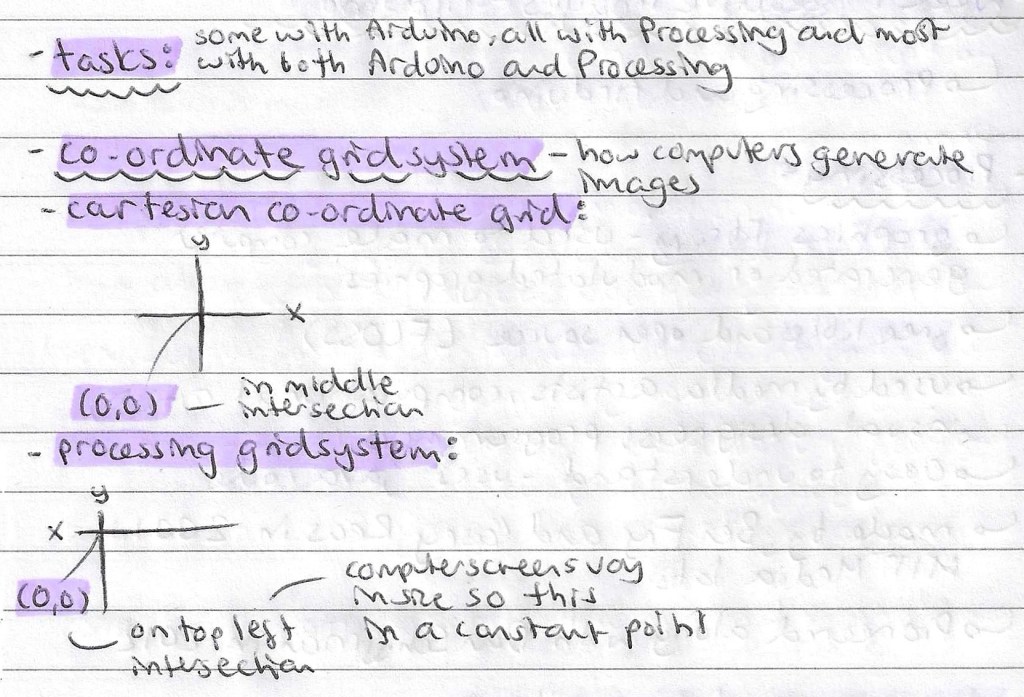 - tasks: some with Arduino, all with Processing and most
with both Arduino and Processing
- co-ordinate gridsystem - how computers generate
images
- cartesian co-ordinate grid:
y
x
(0,0) - in middle
intersection
- processing gridsystem:
y
x
(0,0)
on top left
intersection
computerscreens vary
in size so this
in a constant point